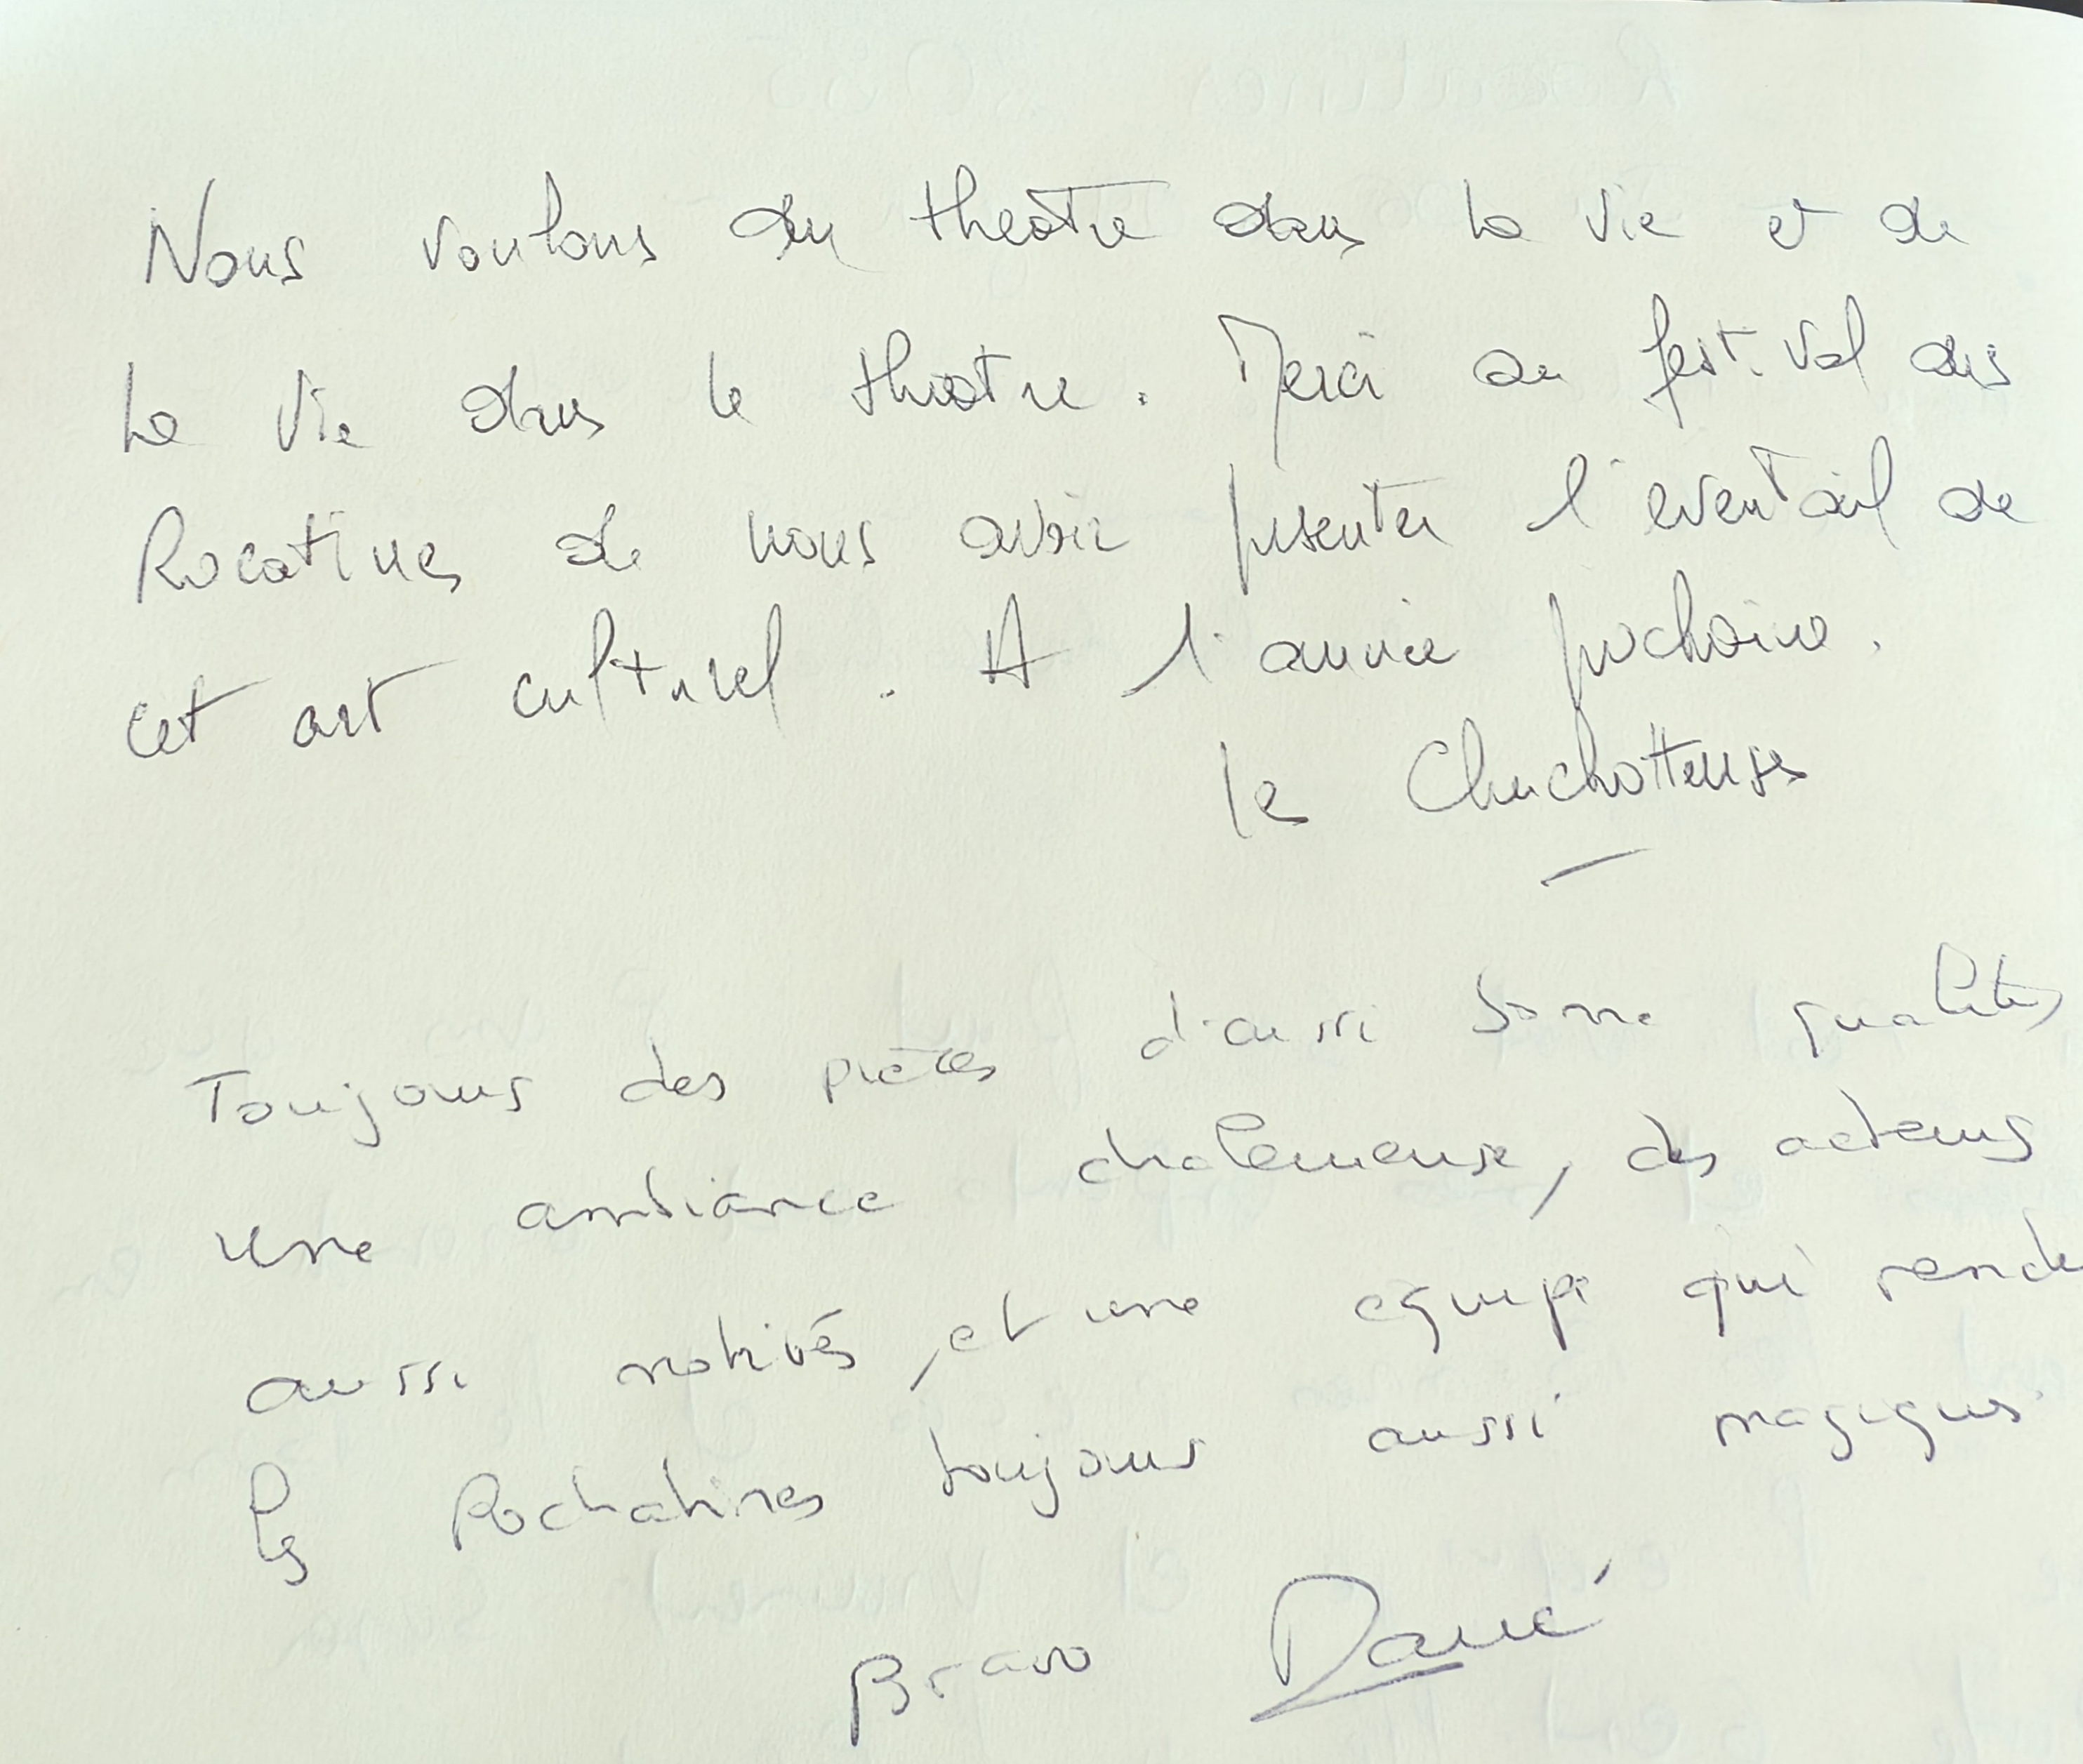 Nous voulons du theâtre dans la vie et de
la vie dans le theâtre. Merci au festival des
Rocatines de nous avoir presenter l'eventail de
cet art culturel. A l'année prochaine.
les Chuchotteuses
Toujours des pièces d'aussi bonne qualités
une ambiance chaleureuse, des acteurs
aussi motivés, et une equipe qui rende
les Rochatines toujours aussi magiques.
Bravo